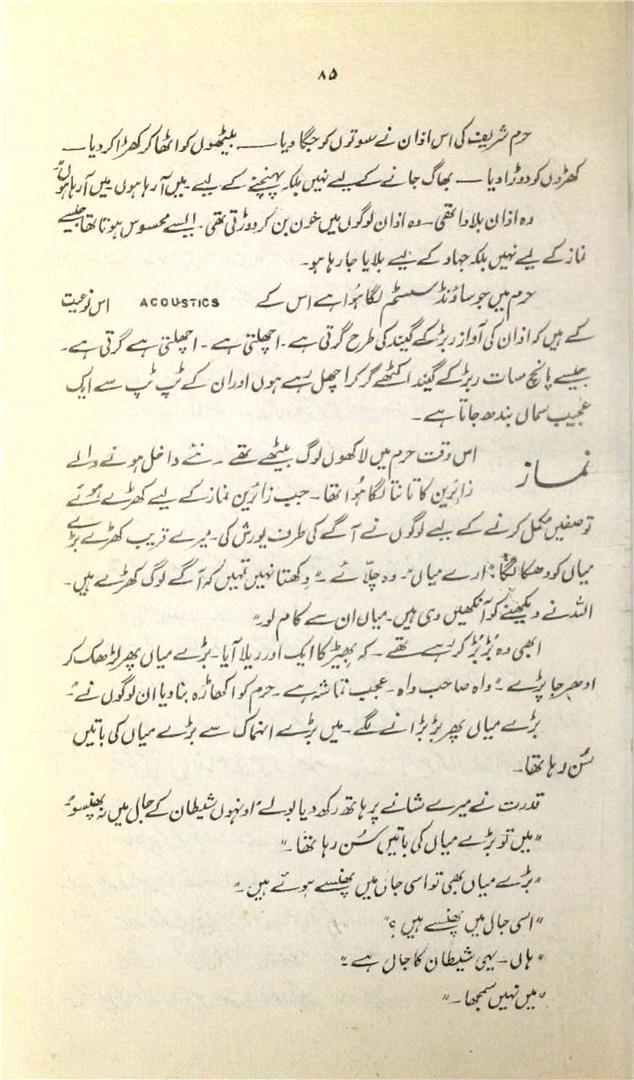 ۸۵
حرم شریف کی اس اذان نے سوتوں کو جگا دیا — بیٹھوں کو اٹھا کر کھڑا کر دیا —
کھڑوں کو دوڑا دیا — بھاگ جانے کے لیے نہیں بلکہ پہنچنے کے لیے میں آ رہا ہوں میں آ رہا ہوں
وہ اذان بلاوا تھی - وہ اذان لوگوں میں خون بن کر دوڑتی تھی - ایسے محسوس ہوتا تھا جیسے
نماز کے لیے نہیں بلکہ جہاد کے لیے بلایا جا رہا ہو -
حرم میں جو ساؤنڈ سسٹم لگا ہوا ہے اس کے ACOUSTICS اس نوعیت
کے ہیں کہ اذان کی آواز ربڑ کے گیند کی طرح گرتی ہے - اچھلتی ہے - اچھلتی ہے گرتی ہے -
جیسے پانچ سات ربڑ کے گیند اکٹھے گر کر اچھل رہے ہوں اور ان کے ٹپ ٹپ سے ایک
عجیب سماں بندھ جاتا ہے -
نماز اس وقت حرم میں لاکھوں لوگ بیٹھے تھے - نئے داخل ہونے والے
زائرین کا تانتا لگا ہوا تھا - جب زائرین نماز کے لیے کھڑے ہوئے
تو صفیں مکمل کرنے کے لیے لوگوں نے آگے کی طرف یورش کی - میرے قریب کھڑے بڑے
میاں کو دھکا لگا "ارے میاں" - وہ چلّائے - "دِکھتا نہیں تمہیں کہ آگے لوگ کھڑے ہیں -
اللہ نے دیکھنے کو آنکھیں دی ہیں - میاں ان سے کام لو"
ابھی وہ بُڑ بُڑ کر رہے تھے - کہ بھیڑ کا ایک اور ریلا آیا - بڑے میاں پھر لڑھک کر
ادھر جا پڑے - "واہ صاحب واہ - عجب تماشہ ہے - حرم کو اکھاڑہ بنا دیا ان لوگوں نے" -
بڑے میاں پھر بڑبڑانے لگے - میں بڑے انہماک سے بڑے میاں کی باتیں
سُن رہا تھا -
قدرت نے میرے شانے پر ہاتھ رکھ دیا بولے "اونہوں شیطان کے جال میں نہ پھنسو"
"میں تو بڑے میاں کی باتیں سُن رہا تھا -"
"بڑے میاں بھی تو اسی جال میں پھنسے ہوئے ہیں -"
"اسی جال میں پھنسے ہیں ؟"
"ہاں - یہی شیطان کا جال ہے -"
"میں نہیں سمجھا -"